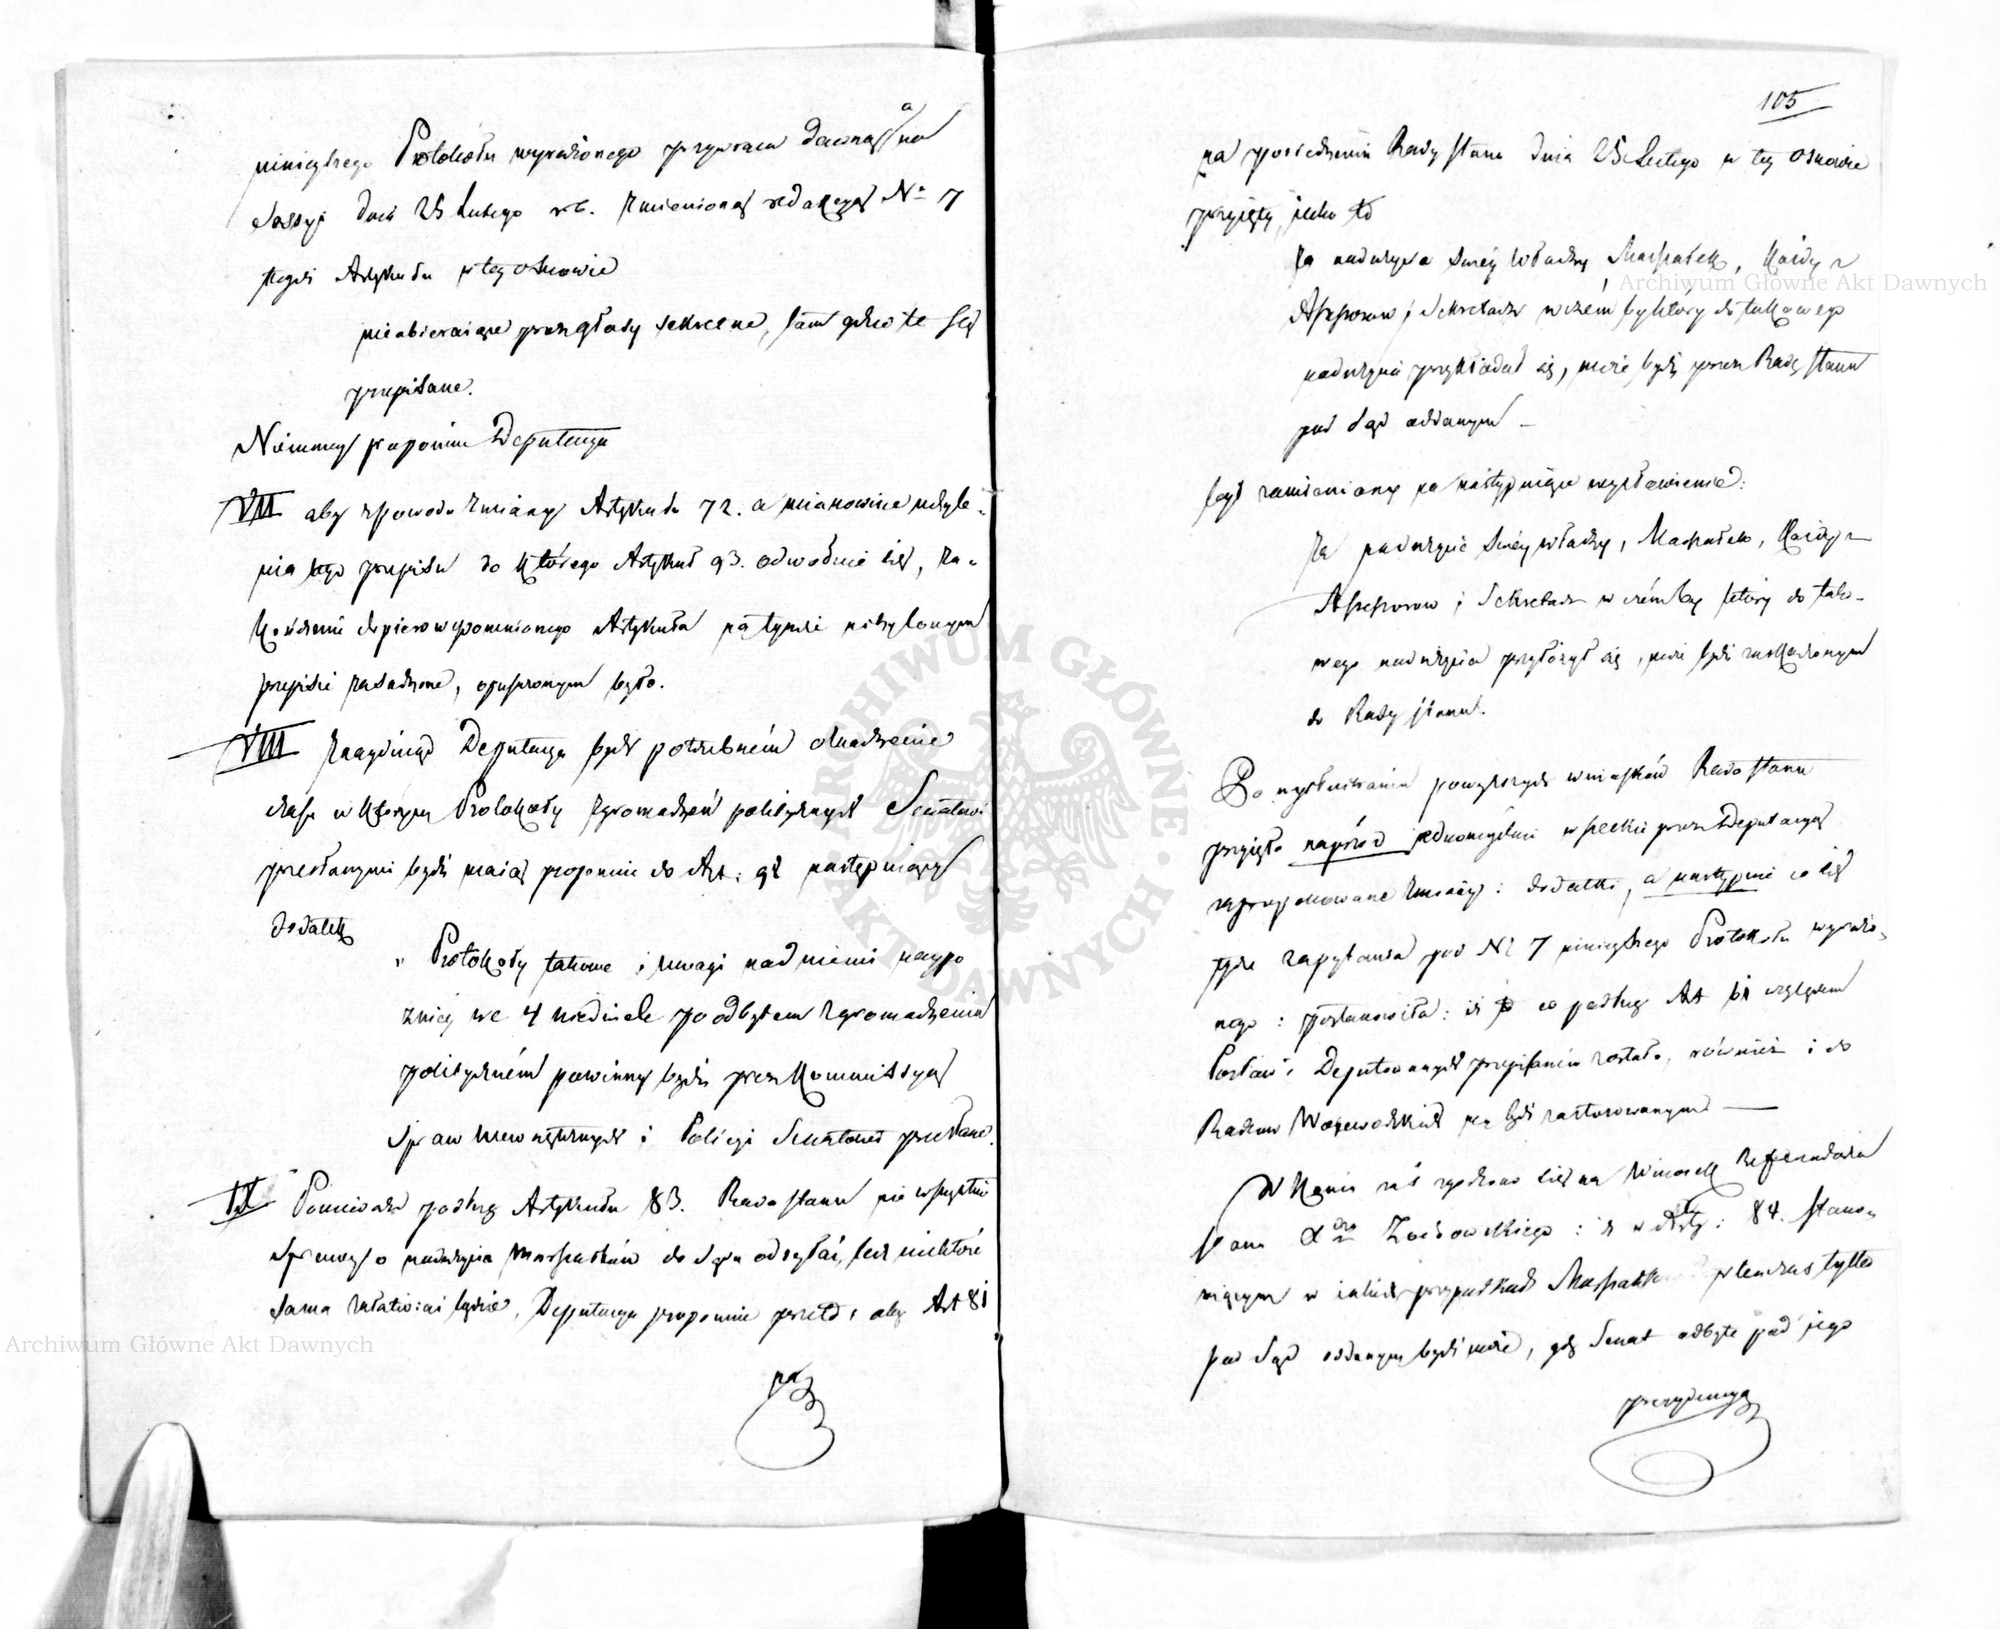 ninieyszego Protokołu wyrażonego przywraca dawną na
Sessyi dnia 25 Lutego rb. zmienioną redakcyą No 7
tegoż Artykułu w tey osnowie
nieobieraiące przez głosy sekretne, tam gdzie te są
przepisane.
Niemniey proponuie Deputacya
VII aby z powodu zmiany Artykułu 72. a mianowicie uchyle-
nia tego przepisu do którego Artykuł 93. odwodnie się, za-
kończenie dopiero wspomnionego Artykułu na tymże uchylonym
przepisie zasadzone, opuszczonym było.
VIII Znayduiąc Deputacya bydź potrzebném oznaczenie
czasu w którym Protokoły zgromadzeń politycznych Senatowi
przesłanymi bydź maią proponuie do Art: 98 następuiący
dodatek
" Protokoły takowe i uwagi nad niemi naypo
źniey we 4 niedziele po odbytem zgromadzeniu
polityczném powinny bydź przez Kommissyą
Spraw Wewnętrznych i Policyi Senatowi przesłane.
IX Ponieważ podług Artykułu 83. Rada Stanu nie wszystkie
Sprawy o nadużycia Marszałków do Sądu odsyłać, lecz niektóre
sama załatwiać będzie, Deputacya proponuie przeto, aby Art 81
na
105
na posiedzeniu Rady Stanu dnia 25 Lutego w tey osnowie
przyięty, iako to
Za nadużycie swéy Władzy Marszałek, każdy z
Assessorow i Sekretarz w czém by który do takowego
nadużycia przykładał się, może bydź przez Radę Stanu
pod Sąd oddanym –
był zamieniony na następuiące wysłowienie:
Za nadużycie swéy władzy, Marszałek, każdy z
Assessorow i Sekretarz w czém by który do tako-
wego nadużycia przyłożył się, może bydź zaskarżonym
do Rady Stanu.
Po wysłuchaniu powyższych wniosków Rada Stanu
przyięła naprzód jednomyślnie wszelkie przez Deputacyą
zaproponowane zmiany i dodatki, a następnie co się
tycze zapytania pod No 7 ninieyszego Protokołu wyrażo-
nego: postanowiła: iż co podług Art 61 względem
Posłów i Deputowanych przepisaném zostało, również i do
Radców Woiewodzkich ma bydź zastosowanym —
W końcu zaś zgodzono się na Wniosek Referendarza
Pana Xdza Zochowskiego: iż w Arty: 84. stano-
wiącym w iakich przypadkach Marszałek wtenczas tylko
pod Sąd oddanym bydź może, gdy Senat odbyte pod jego
prezydencyą
Archiwum Główne Akt Dawnych
Archiwum Główne Akt Dawnych
ARCHIWUM GŁÓWNE · AKT DAWNYCH ·